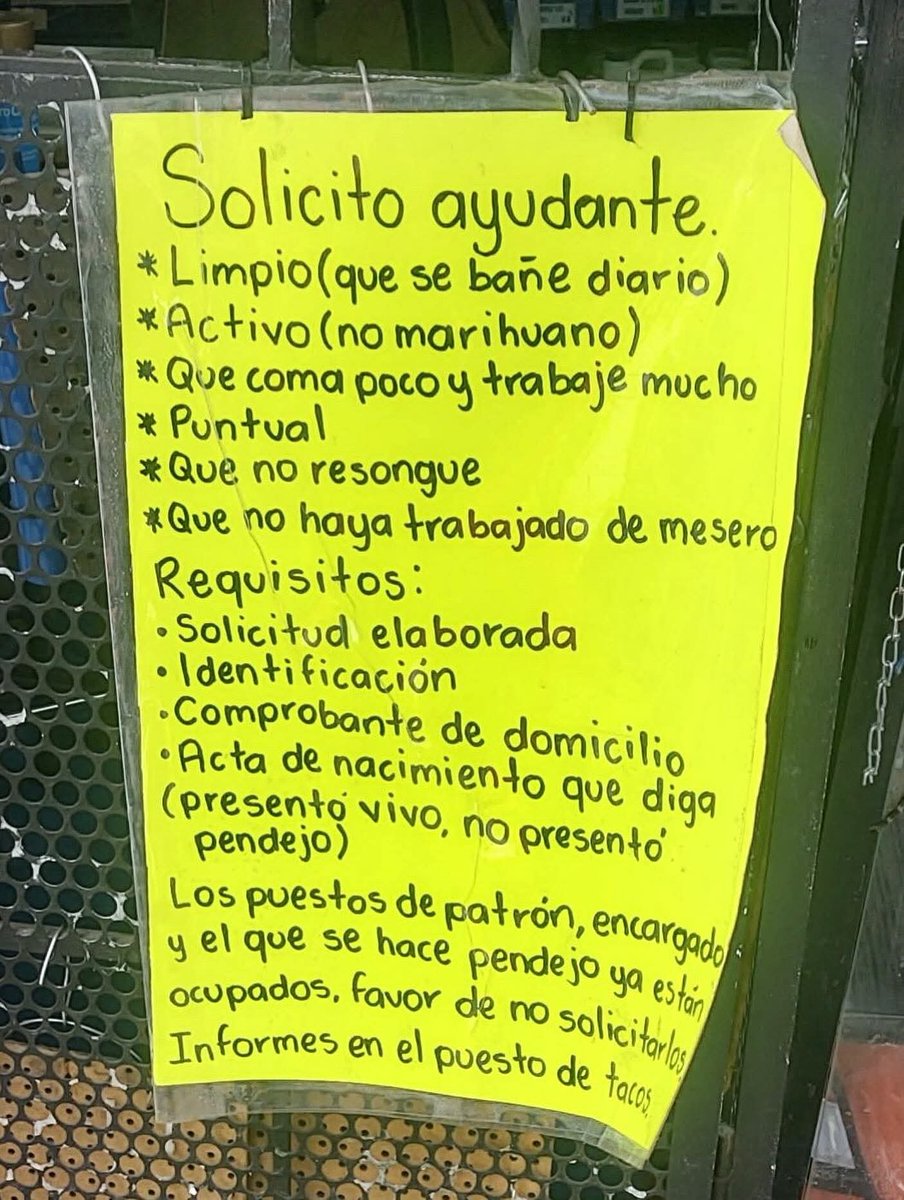 Solicito ayudante.
* Limpio (que se bañe diario)
* Activo (no marihuano)
* Que coma poco y trabaje mucho
* Puntual
* Que no resongue
* Que no haya trabajado de mesero
Requisitos:
• Solicitud elaborada
• Identificación
• Comprobante de domicilio
• Acta de nacimiento que diga
(presentó vivo, no presentó
pendejo)
Los puestos de patrón, encargado
y el que se hace pendejo ya están
ocupados, favor de no solicitarlos
Informes en el puesto de tacos.